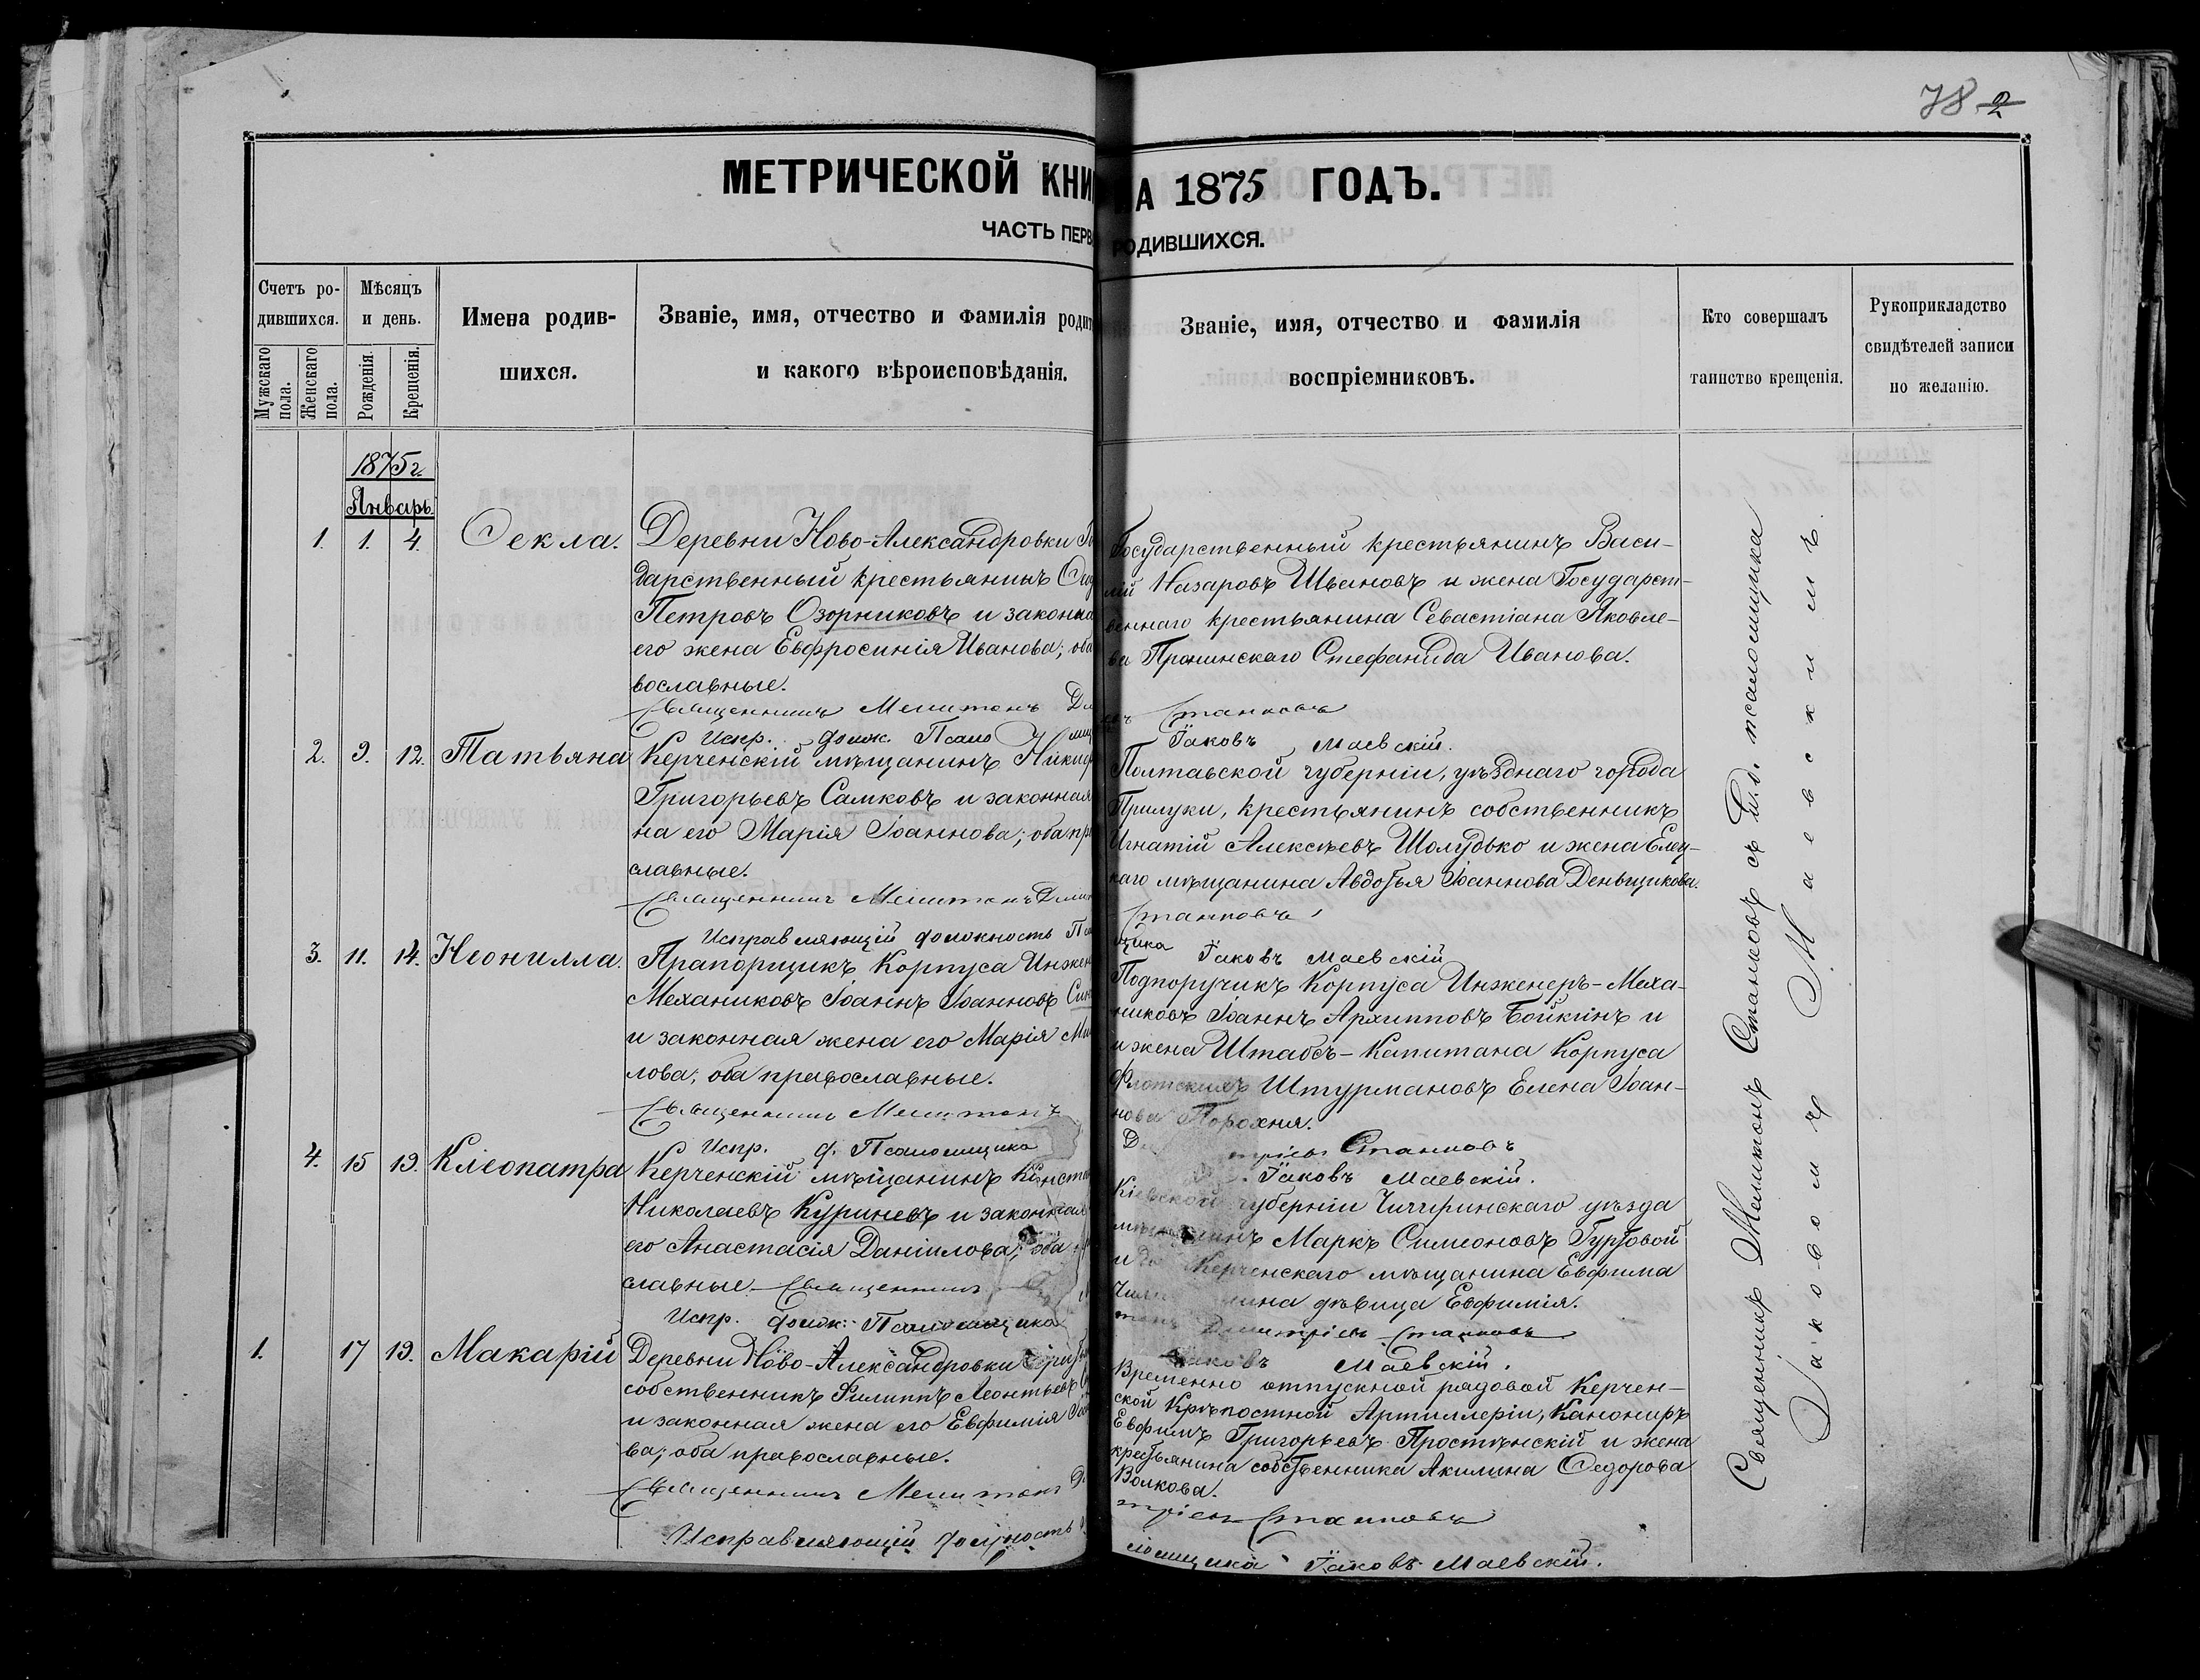 78 2
МЕТРИЧЕСКОЙ КНИ
НА 1875 ГОДЪ.
ЧАСТЬ ПЕРВ
РОДИВШИХСЯ.
Счетъ ро-
дившихся.
Мужскаго пола.
Женскаго пола.
Мѣсяцъ
и день.
Рожденія.
Крещенія.
Имена родив-
шихся.
Званіе, имя, отчество и фамилія родит
и какого вѣроисповѣданія.
Званіе, имя, отчество и фамилія
воспріемниковъ.
Кто совершалъ
таинство крещенія.
Рукоприкладство
свидѣтелей записи
по желанію.
1875 г.
Январь.
1. 1. 4. Ѳекла.
Деревни Ново-Александровки Го
дарственный крестьянинъ
Петровъ Озорниковъ и законна
его жена Евфросинія Иванова; оба
вославные.
Священникъ Мелитонъ Ди
Испр. долж. Псало мщ
Государственный крестьянинъ Васи-
лій Назаровъ Ивановъ и жена Государст-
веннаго крестьянина Севастіана Яковле-
ва Пронинскаго Стефанида Иванова.
евъ Станковъ
Іаковъ Маевскій.
2. 9. 12. Татьяна
Керченскій мѣщанинъ Никиф
Григорьевъ Самковъ и законная
на его Марія Іоаннова; оба пр
славные.
Священникъ Мелитонъ Дими
Исправляющій должность Пса
Полтавской губерніи, уѣзднаго города
Прилуки, крестьянинъ собственникъ
Игнатій Алексѣевъ Шолудько и жена Елец-
каго мѣщанина Авдотья Іоаннова Деньщикова.
Станковъ
щика Іаковъ Маевскій
3. 11. 14. Неонилла.
Прапорщикъ Корпуса Инжен
Механиковъ Іоаннъ Іоанновъ
и законная жена его Марія Ми
лова; оба православные.
Священникъ Мелитонъ
Испр. д. Псаломщика
Подпоручикъ Корпуса Инженеръ-Меха-
никовъ Іоаннъ Архипповъ Бойкинъ и
и жена Штабсъ-Капитана Корпуса
Флотскихъ Штурмановъ Елена Іоан-
нова Порохня.
Ди трiевъ Станковъ
Іаковъ Маевскій.
4. 15 19. Клеопатра
Керченскій мѣщанинъ Конста
Николаевъ Куриневъ и законная
его Анастасія Даніилова; оба
славные Священникъ
Испр. долж: Псаломщика
Кіевской губерніи Чигиринскаго уѣзда
мѣщанинъ Маркъ Симеоновъ Гурковой
и Керченскаго мѣщанина Евфима
дѣвица Евфимія.
тонъ Димитріевъ Станковъ
Іаковъ Маевскій.
1. 17 19. Макарій
Деревни Ново-Александровки
собственникъ Филиппъ Леонтьевъ
и законная жена его Евфимія
ва; оба православные.
Священникъ Мелитонъ Ди
Исправляющій должность
Временно отпускной рядовой Керчен-
ской Крѣпостной Артиллеріи, Канониръ
Евфимъ Григорьевъ Простѣнскій и жена
крестьянина собственника Акилина Ѳедорова
Волкова.
тріевъ Станковъ
ломщика Іаковъ Маевскій.
Священникъ Мелитонъ Станковъ съ И.д. псаломщика
Іаковомъ Маевскимъ.